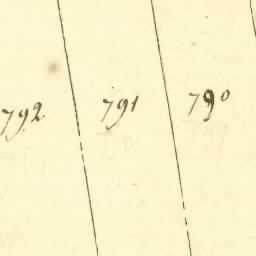 792 791 790